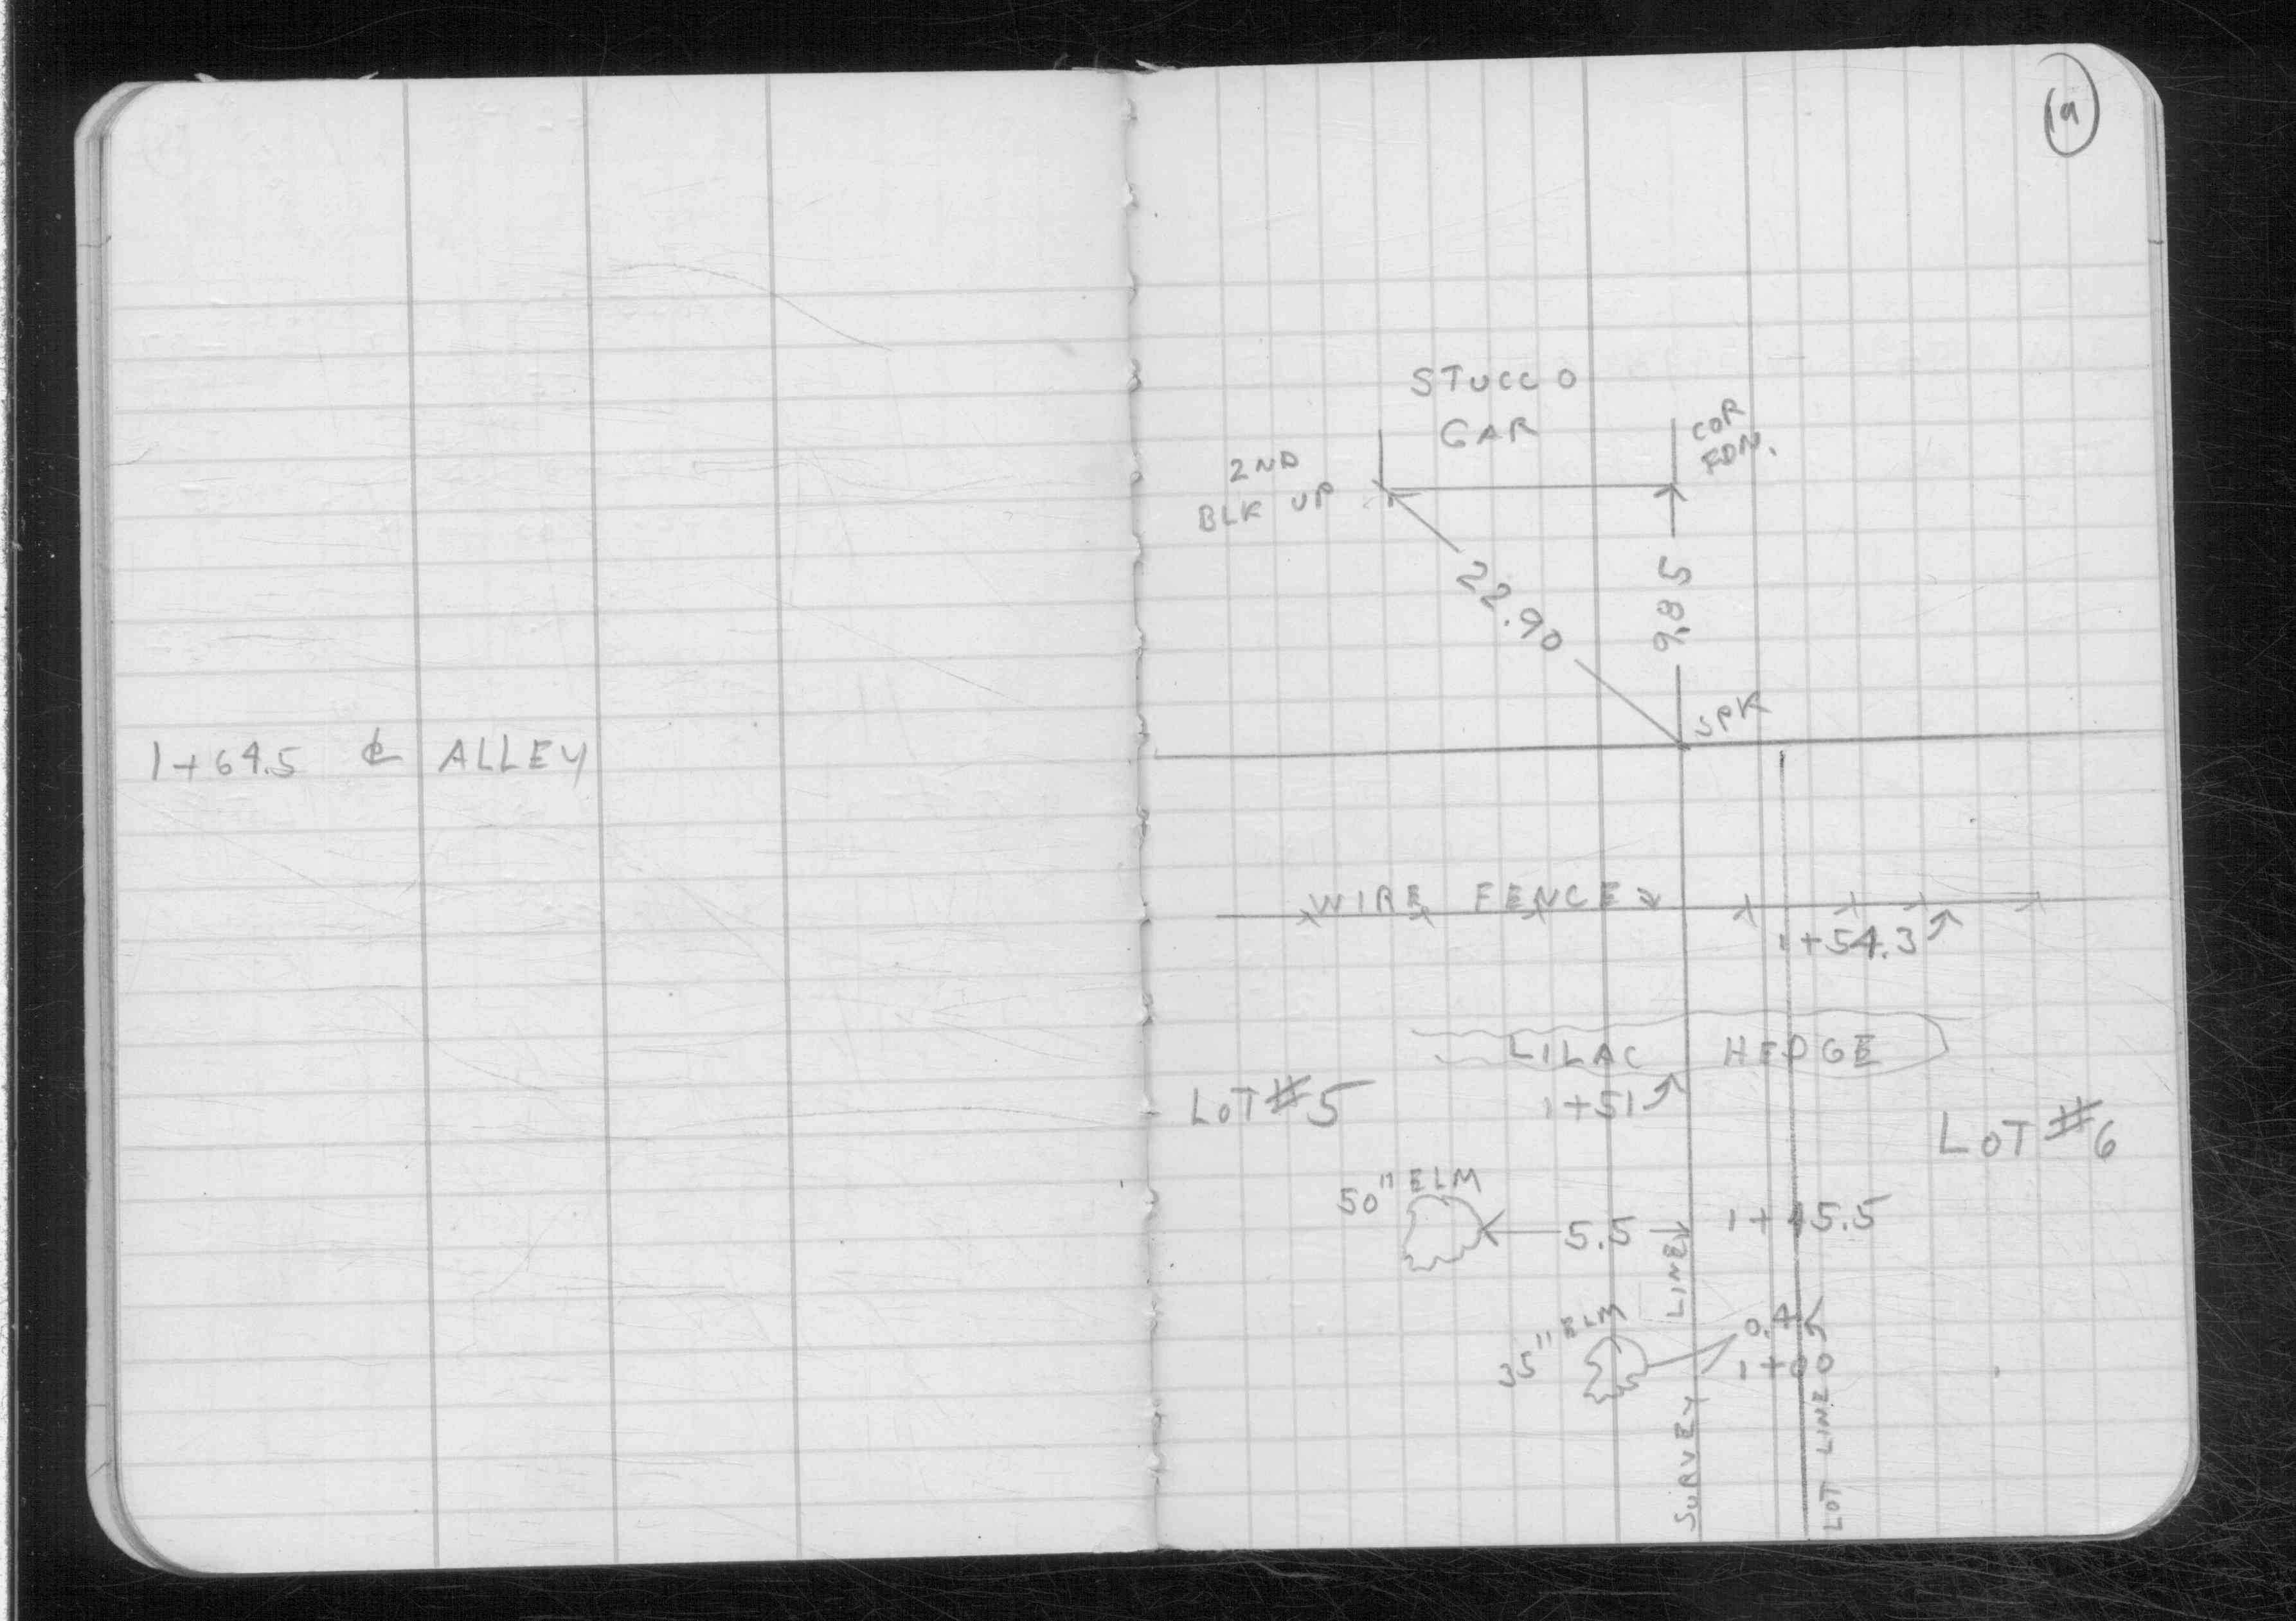 19
STUCCO
GAR
COR
FDN.
2ND
BLK UP
22.90
9.85
SPK
1+64.5 ℄ ALLEY
WIRE FENCE
1+54.3
LILAC HEDGE
1+51
LOT #5
LOT #6
50" ELM
5.5
1+45.5
35" ELM
1+00
SURVEY LINE
LOT LINE